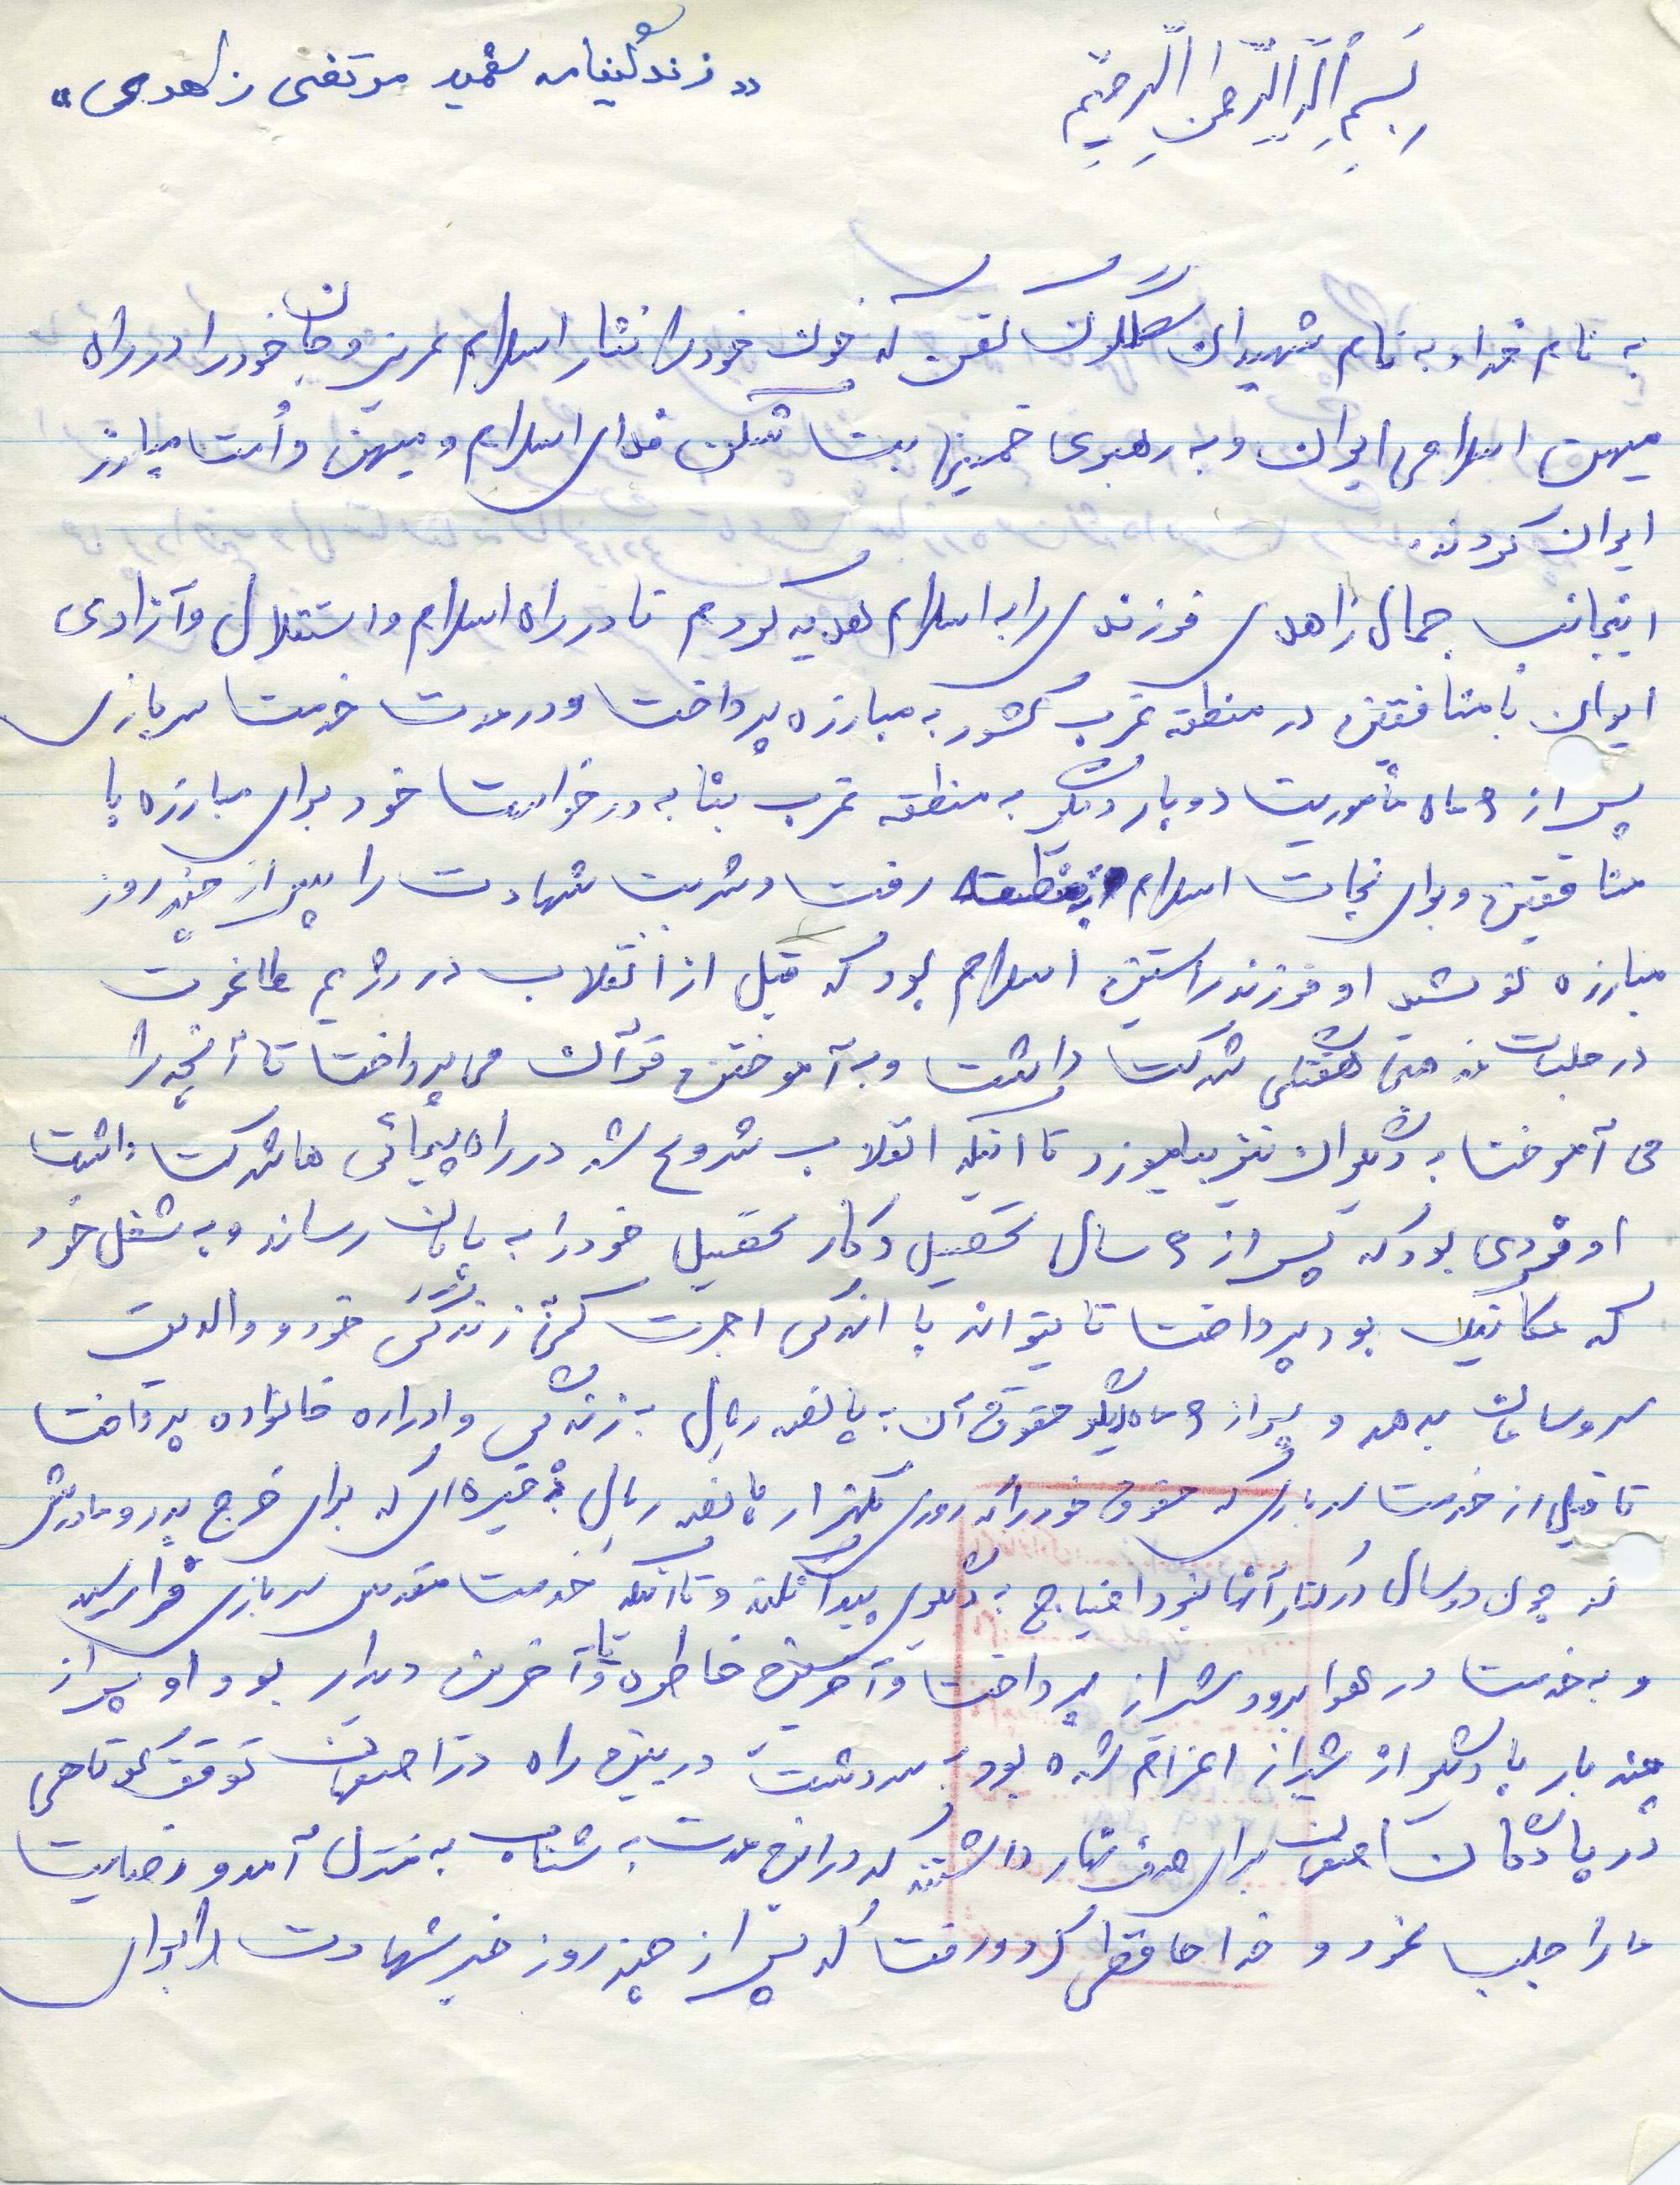 بِسمِ اللهِ الرَّحمنِ الرَّحیمِ
«زندگینامه شهید مرتضی زاهدی»
به نام خدا و به نام شهیدان گلگون کفن که خون خود را نثار اسلام عزیز و جان خود را در راه
میهن اسلامی ایران و به رهبری خمینی بت شکن فدای اسلام و میهن و اُمت مبارز
ایران کردند.
اینجانب جمال زاهدی فرزندی را به اسلام هدیه کردم تا در راه اسلام و استقلال و آزادی
ایران با منافقین در منطقه غرب کشور به مبارزه پرداخت و در مدت خدمت سربازی
پس از ماه مأموریت دوبار دیگر به منطقه غرب بنا به درخواست خود برای مبارزه با
منافقین و برای نجات اسلام رفت و شربت شهادت را پس از چند روز
مبارزه نوشید او فرزند راستین اسلام بود که قبل از انقلاب در رژیم طاغوت
در جلسات مذهبی هفتگی شرکت داشت و به آموختن قرآن می پرداخت تا آنچه را
می آموخت به دیگران نیز بیاموزد تا اینکه انقلاب شروع شد در راه پیمائی ها شرکت داشت
او فردی بود که پس از سال تحصیل و کار تحصیل خود را به پایان رساند و به شغل خود
که مکانیک بود پرداخت تا بتواند با اندکی اجرت کمی زندگی خود و والدین
سر و سامان بدهد و پس از ماه دیگر حقوق آن به پانصد ریال به زندگی و اداره خانواده پرداخت
تا قبل از خدمت سربازی که حقوق خود را که روزی یکهزار پانصد ریال ذخیره ای که برای خرج پدر و مادرش
که چون دو سال در کنار آنها نبود احتیاج به دیگری پیدا نکند و تا اینکه خدمت مقدس سربازی فرا رسید
و به خدمت در هوابرد شیراز پرداخت و آخرین خاطره با او آخرین دیدار بود او پس از
چند بار با دیگر از شیراز اعزام شده بود به سردشت در بین راه در اصفهان توقف کوتاهی
در پادگان اصفهان برای صرف نهار داشتند که در این مدت به شتاب به منزل آمد و رضایت
ما را جلب نمود و خدا حافظی کرد و رفت که پس از چند روز خبر شهادت را برای